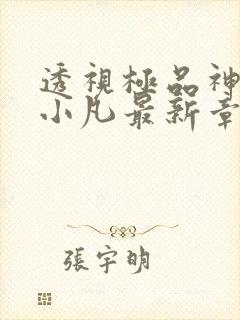 透視極品神
小凡最新章
張宇明